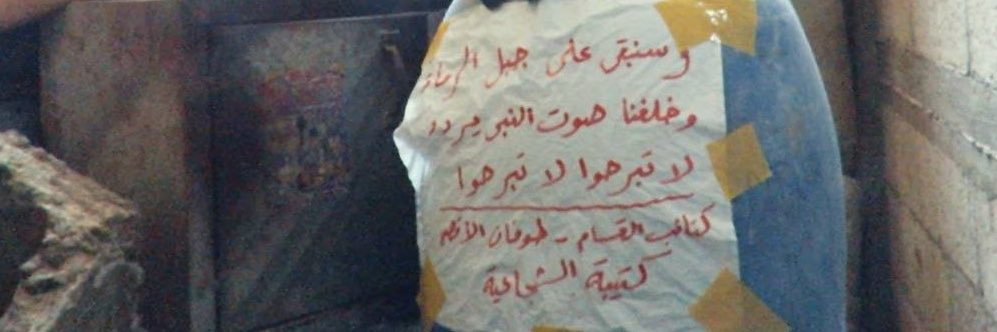 وسنبقى على جبل الرماة
وخلفنا صوت النبي يردد
لا تبرحوا لا تبرحوا
كتائب القسام - طوفان الأقصى
كتيبة الشجاعية